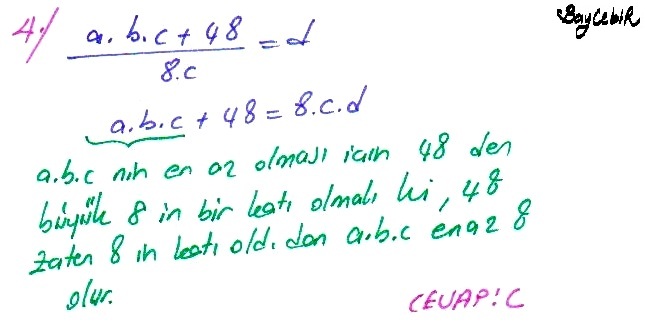 BayCebiR
4·) a. b. c + 48 = d
8.c
a.b.c + 48 = 8.c.d
a.b.c nin en az olması için 48 den
büyük 8 in bir katı olmalı ki, 48
zaten 8 in katı old. dan a.b.c en az 8
olur.
CEVAP: C